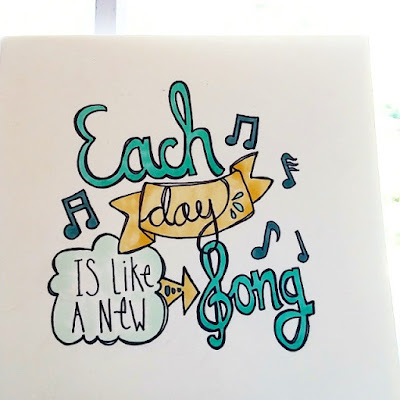 Each
day
IS LIKE
A NEW
Song